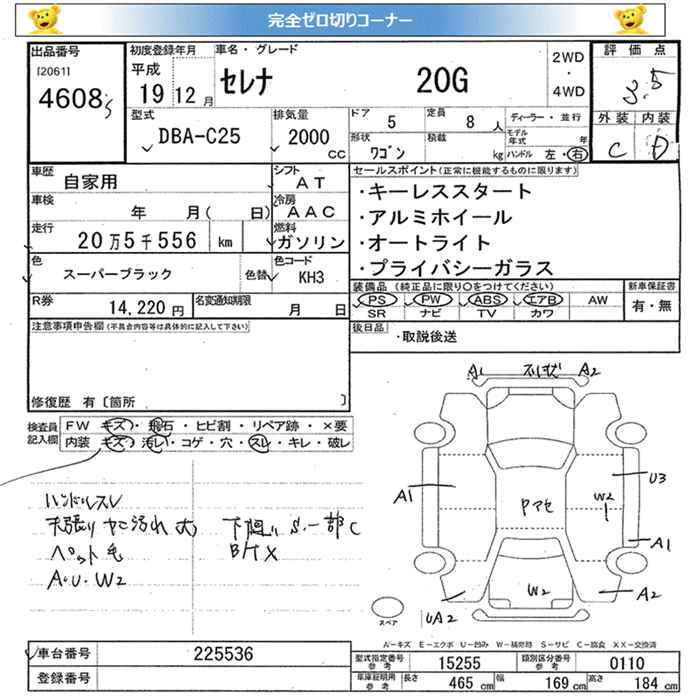 完全ゼロ切りコーナー
出品番号 初度登録年月 車名・グレード 2WD ・ 4WD 評価点
120611 平成 セレナ 20G 3.5
4608 19 12月
型式 排気量 ドア 5 定員 8人 ディーラー・並行 外装 内装
DBA-C25 2000CC 形状 ワゴン 積載 kg モデル年式 年 C D
ハンドル 左・右
車歴 自家用 シフト AT セールスポイント(正常に機能するものに限ります)
車検 年 月( 日) 冷房 AAC ・キーレススタート
走行 20万5千556 km 燃料 ガソリン ・アルミホイール
・オートライト
色 スーパーブラック 色替 色コード KH3 ・プライバシーガラス
R券 14,220円 名変通知期限 月 日 装備品(純正品に限り○をつけてください) 新車保証書
PS PW ABS エアB AW 有・無
SR ナビ TV カワ
注意事項申告欄(不具合内容等は具体的に記入して下さい) 後日品 ・取説後送
修復歴 有〔箇所 〕
検査員記入欄 FW キズ・飛石・ヒビ割・リペア跡・×要
内装 キズ・汚レ・コゲ・穴・スレ・キレ・破レ
ハンドルスレ
天張りヤニ汚れ大 下廻り S.一部C
ペット毛 B/TX
A・U・W2
A1 A2
A1 Pアセ W2 U3
A1
W2 A2
UA2
スペア
A-キズ E-エクボ U-凹み W-補修跡 S-サビ C-腐食 XX-交換済
車台番号 225536 型式指定番号参考 15255 類別区分番号参考 0110
登録番号 車庫証明用参考 長さ 465cm 幅 169cm 高さ 184cm